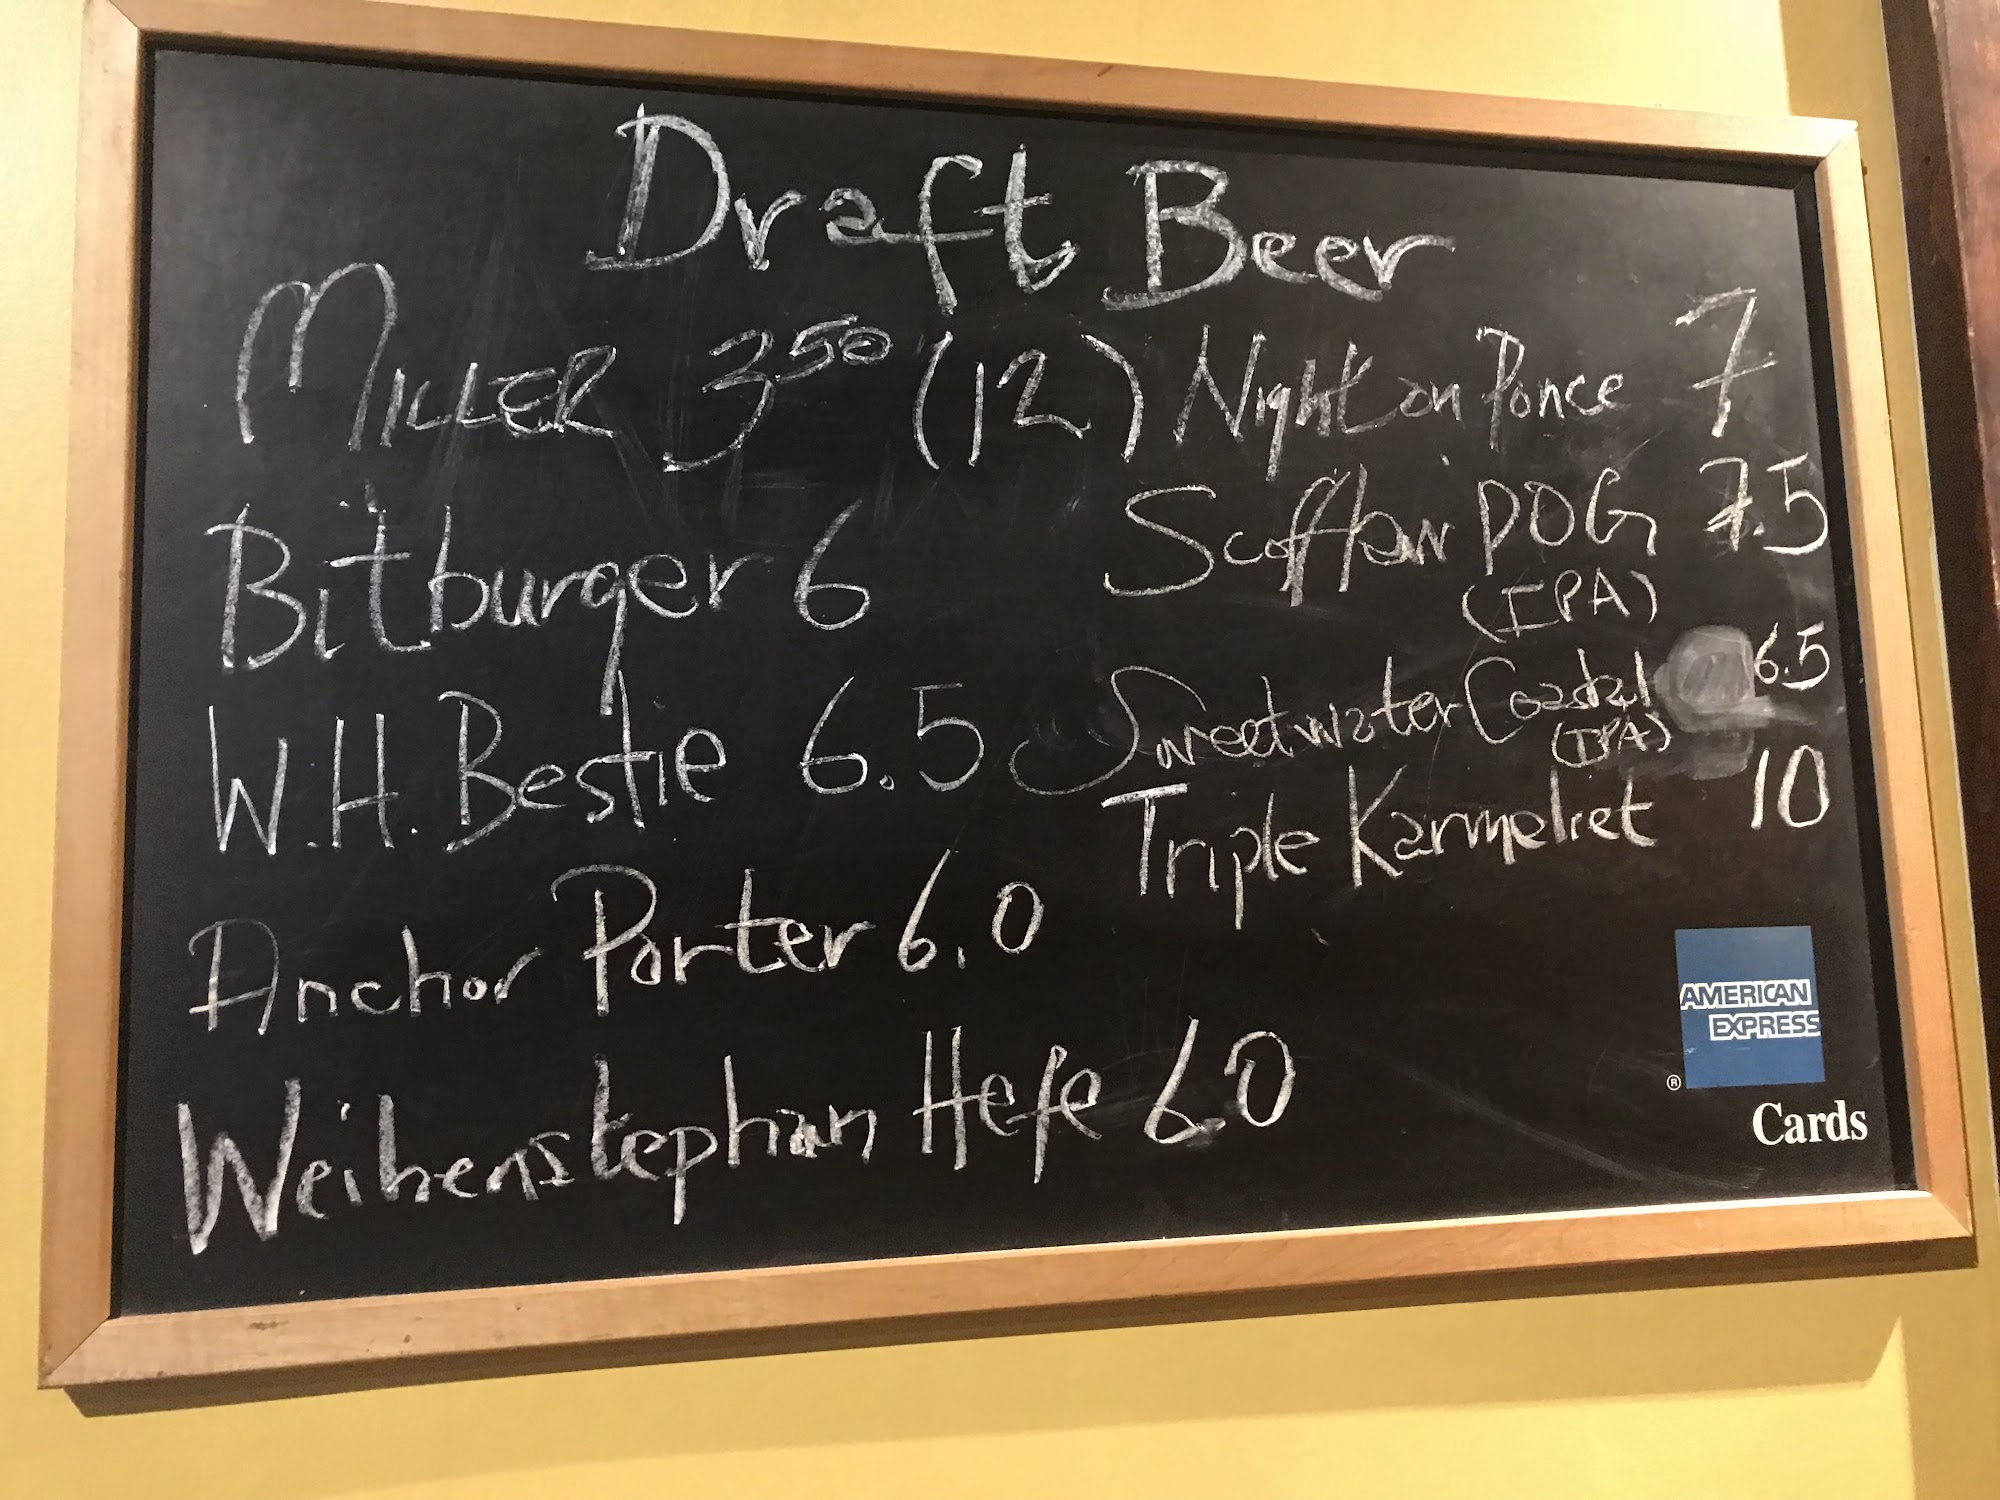 Draft Beer
MILLER 3.50 (12)
Bitburger 6
W.H. Bestie 6.5
Anchor Porter 6.0
Weihenstephan Hefe 6.0
Night on Ponce 7
Scofflaw POG 7.5
(IPA)
Sweetwater Coastal 6.5
(IPA)
Triple Karmeliet 10
AMERICAN
EXPRESS
®
Cards